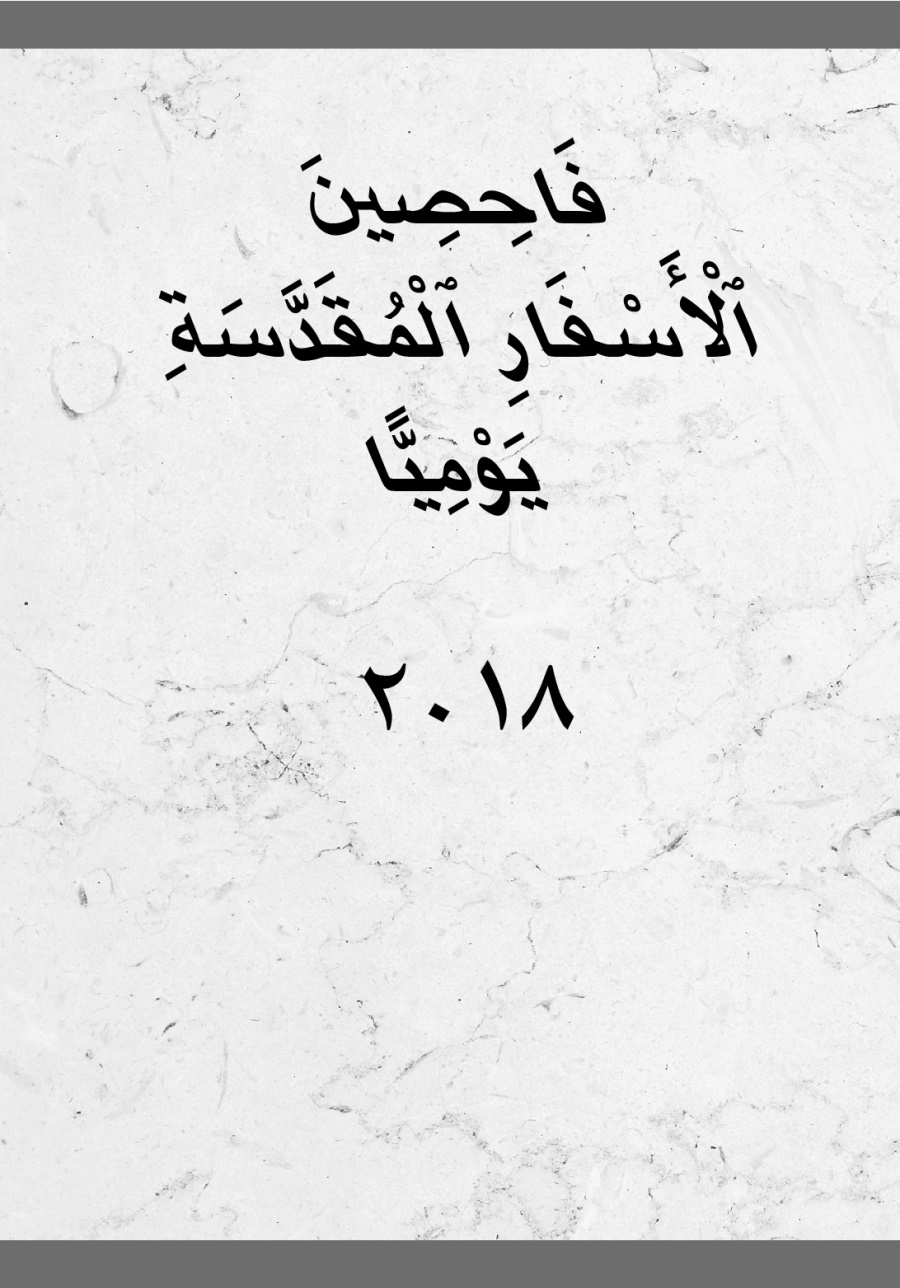 فَاحِصِينَ
ٱلْأَسْفَارِ ٱلْمُقَدَّسَةِ
يَوْمِيًّا
٢٠١٨